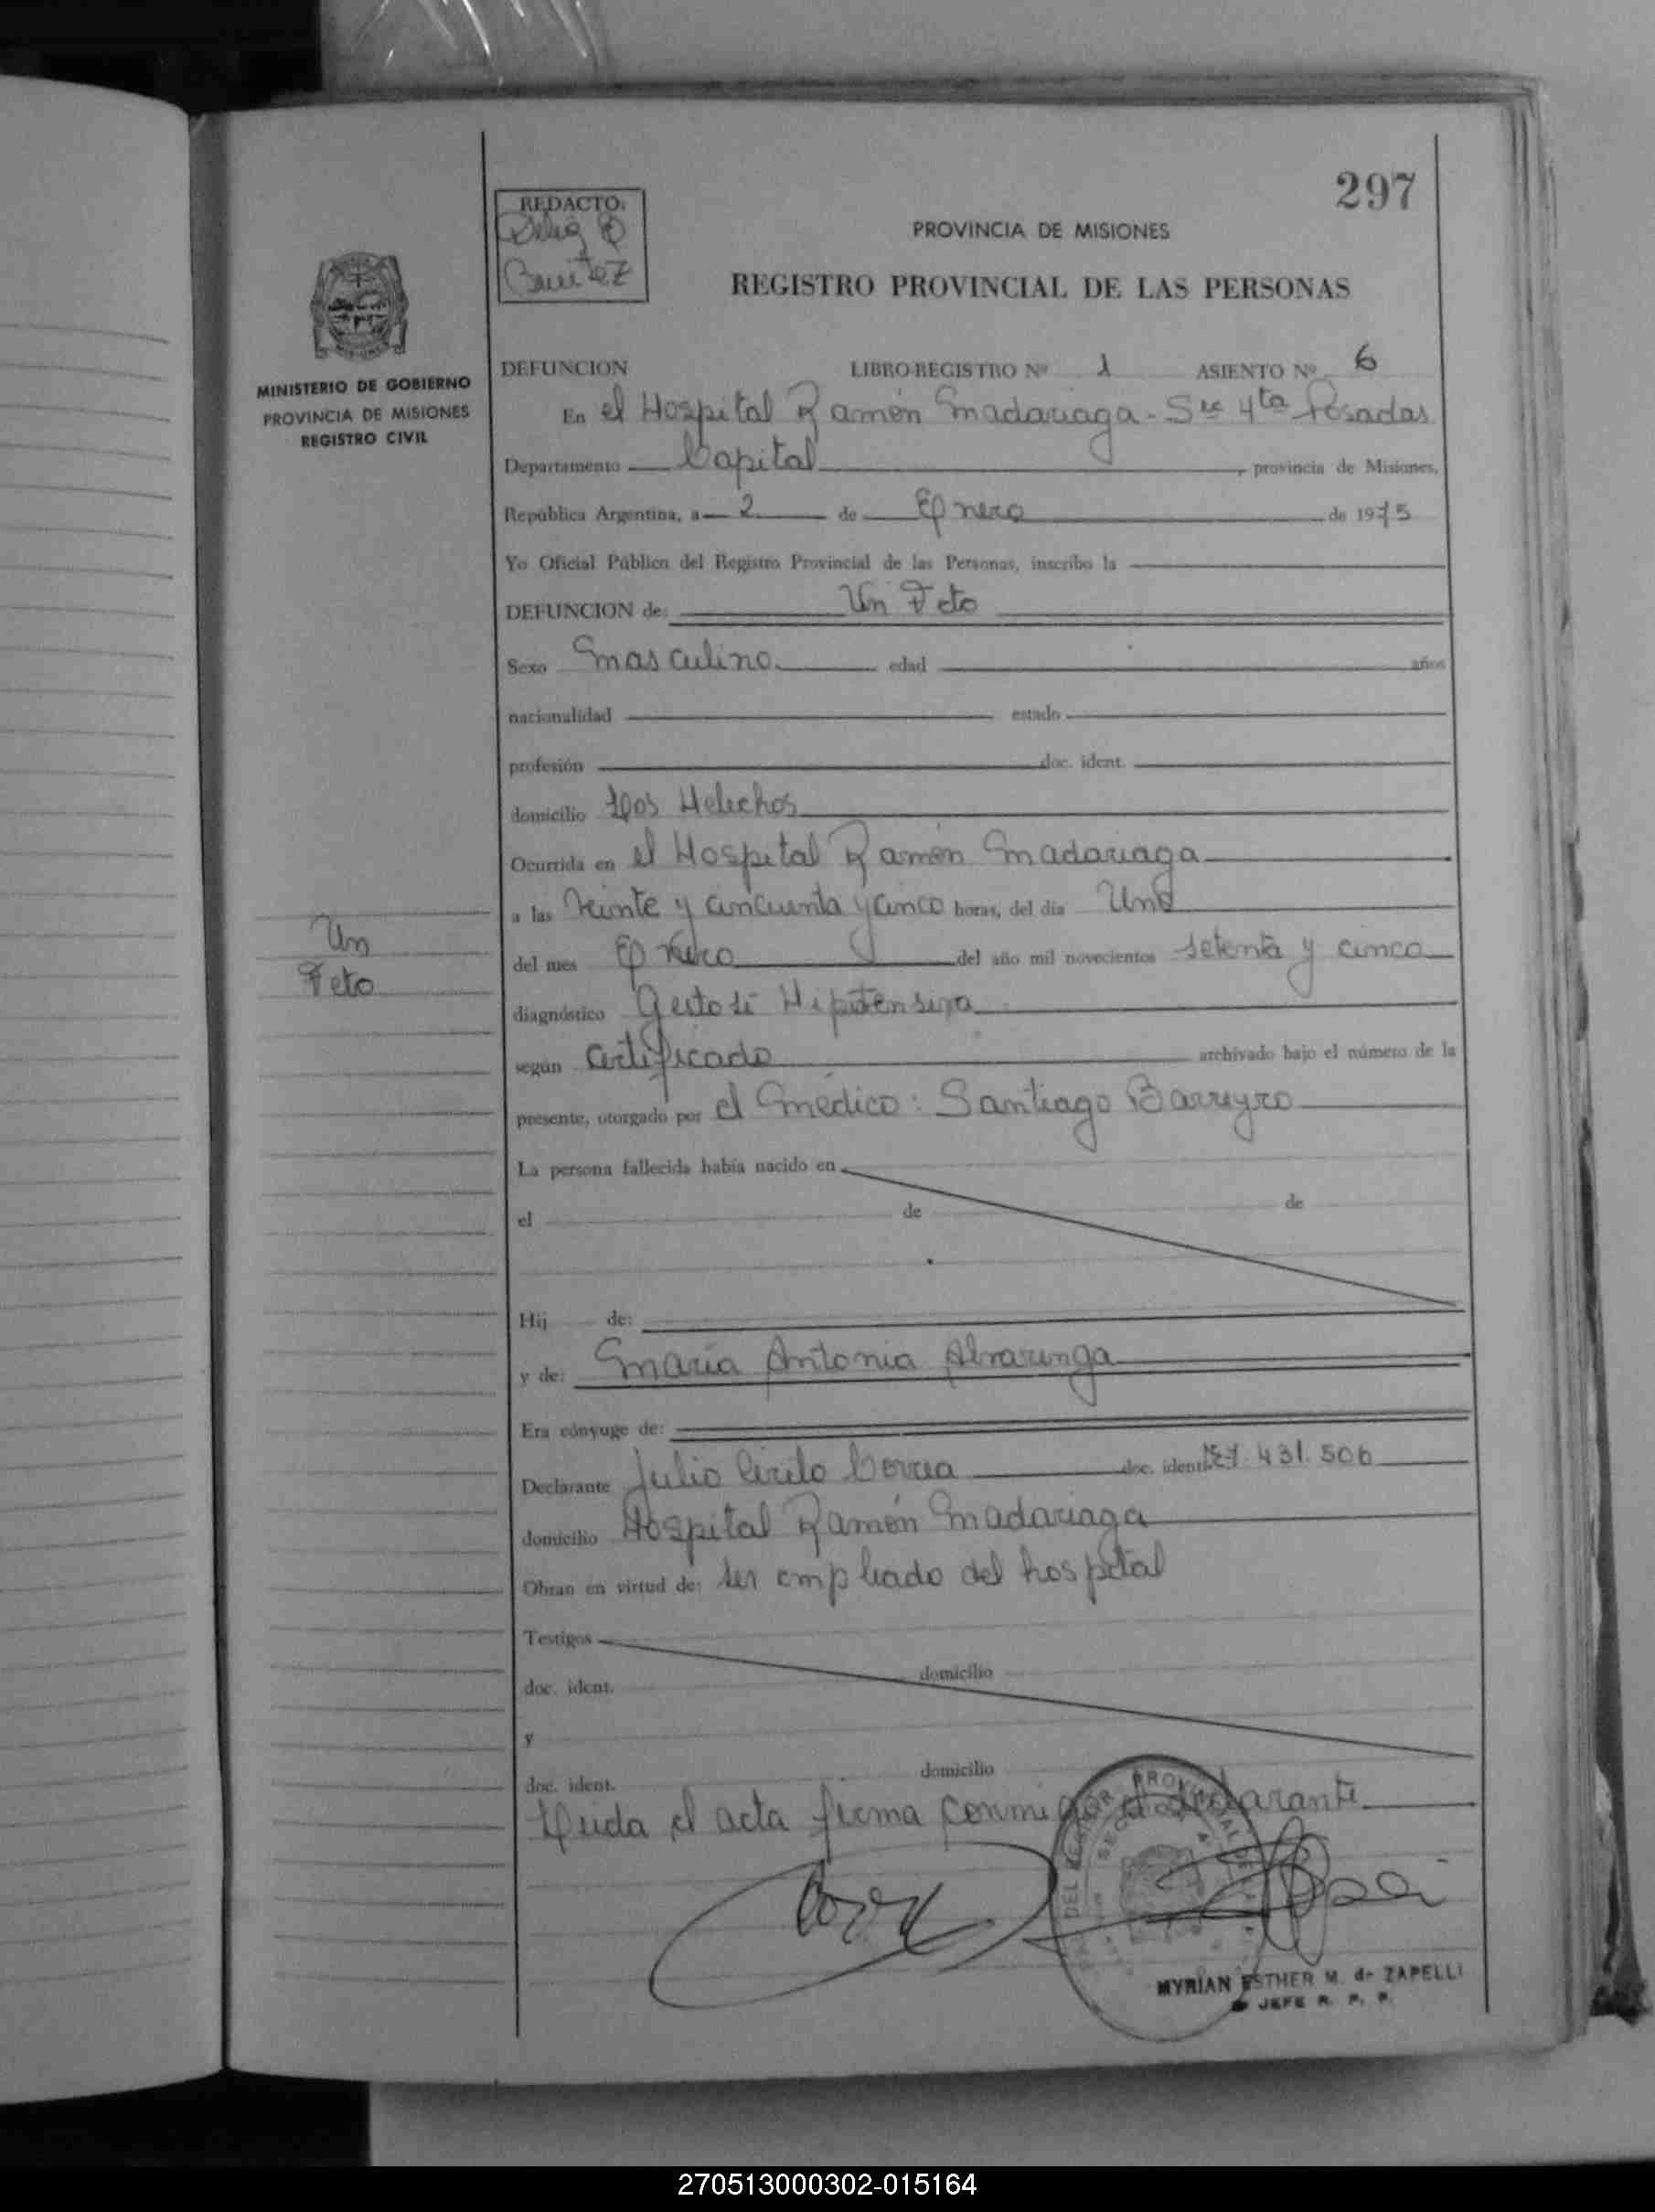 297
REDACTO:
Delia B
Benitez
PROVINCIA DE MISIONES
REGISTRO PROVINCIAL DE LAS PERSONAS
MINISTERIO DE GOBIERNO
PROVINCIA DE MISIONES
REGISTRO CIVIL
DEFUNCION LIBRO-REGISTRO Nº 1 ASIENTO Nº 6
En el Hospital Ramón Madariaga - Sec 4ta Posadas
Departamento Capital, provincia de Misiones,
República Argentina, a 2 de Enero de 1975
Yo Oficial Público del Registro Provincial de las Personas, inscribo la
DEFUNCION de: Un Feto
Sexo Masculino edad años
nacionalidad estado
profesión doc. ident.
domicilio Los Helechos
Ocurrida en el Hospital Ramón Madariaga
a las veinte y cincuenta y cinco horas, del día Uno
Un
Feto
del mes Enero del año mil novecientos setenta y cinco
diagnóstico Gestosi Hipotensiva
según certificado archivado bajo el número de la
presente, otorgado por el Médico: Santiago Barreyro
La persona fallecida había nacido en
el de de
Hij de:
y de: María Antonia Alvarenga
Era cónyuge de:
Declarante Julio Cirilo Correa doc. ident. 431.506
domicilio Hospital Ramón Madariaga
Obran en virtud de: ser empleado del hospital
Testigos
doc. ident. domicilio
y
doc. ident. domicilio
Leida el acta firma conmigo el declarante
MYRIAN ESTHER M. de ZAPELLI
JEFE R. P. P.
270513000302-015164